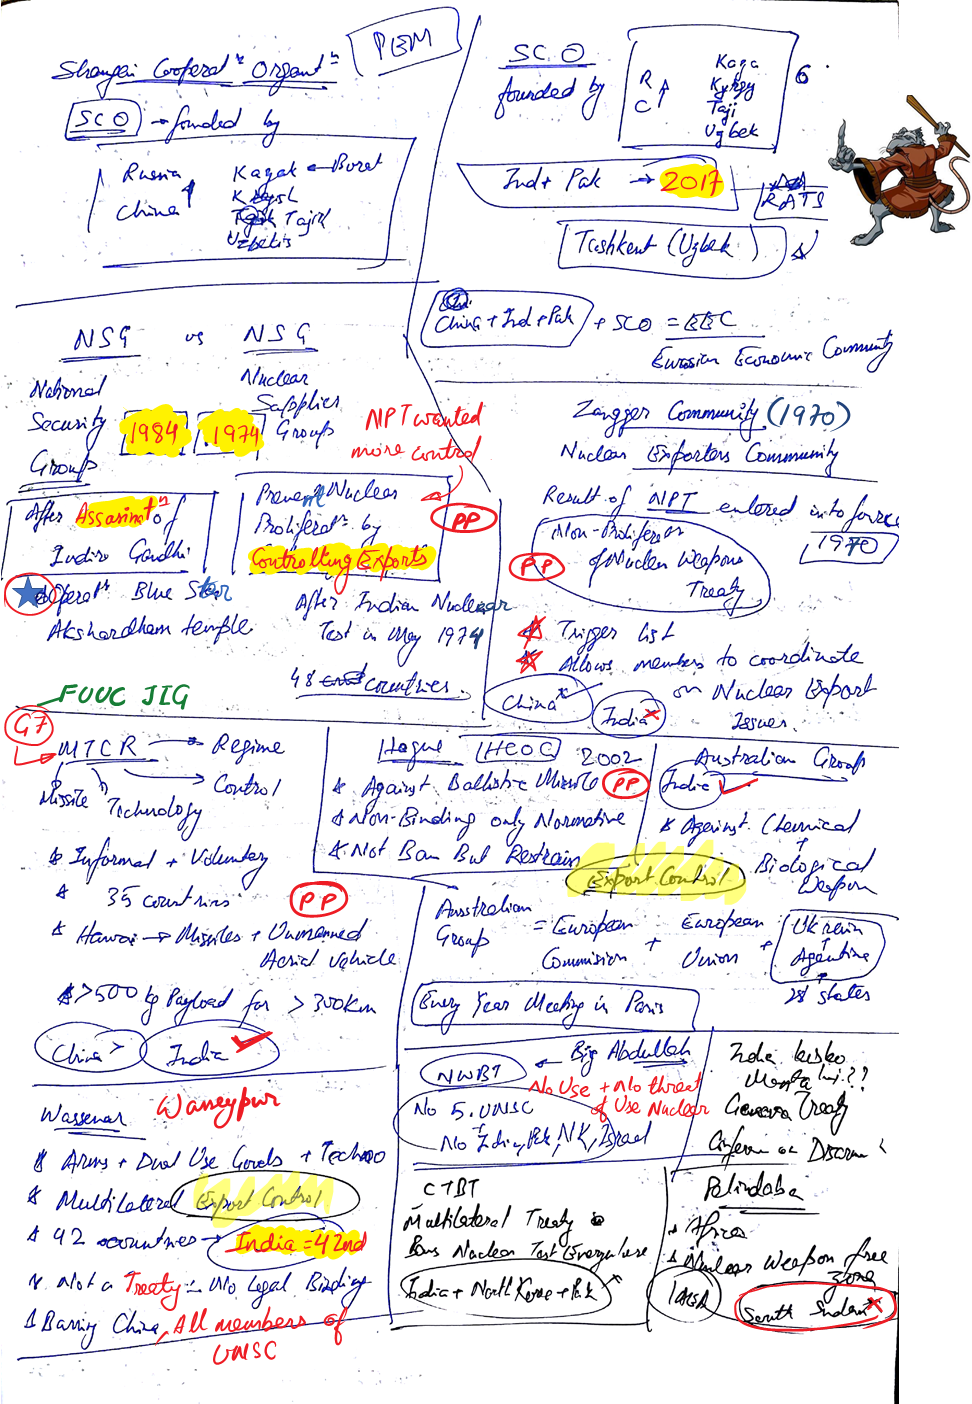 Shangai Cooperatⁿ Organtⁿ
PBM
SCO → founded by
Russia
China
Kazak ← Borat
Tajik
Uzbekis
SCO
founded by
R
C
Kaza
Kyrgy
Taji
Uzbek
6
Ind + Pak → 2017
RATS
Tashkent (Uzbek)
China + Ind + Pak + SCO = EEC
Eurasian Economic Community
NSG vs NSG
National
Security
Group
1984
1974
Nuclear
Supplier
Groups
NPT wanted
more control
After Assasinatⁿ of
Indira Gandhi
Prevent Nuclear
Proliferatⁿ by
Controlling Exports
PP
Operatⁿ Blue Star
Akshardham temple
After Indian Nuclear
Test in May 1974
48 countries
Zangger Community (1970)
Nuclear Exporters Community
Result of NPT entered into force
1970
Non-Proliferⁿ
of Nuclear Weapons
Treaty
PP
Trigger list
Allows members to coordinate
on Nuclear Export
Issues
China x
India x
FUUC JIG
G7
MTCR → Regime
Control
Missile Technology
* Informal + Voluntary
* 35 countries
PP
* Hawai → Missiles + Unmanned
Aerial vehicle
* >500 kg Payload for >300km
China x
India ✓
Hague HCOC 2002
* Against Ballistic Missile PP
* Non-Binding only Normative
* Not Ban But Restrain
Australian Group
India ✓
* Against Chemical
+
Biological
Weapon
Export Control
Australian
Group
= European
Commission
+ European
Union
+ Ukrain
+
Agentine
28 states
Every Year Meeting in Paris
Wassenar Wanneypur
* Arms + Dual Use Goods + Techno
* Multilateral Export Control
* 42 countries → India = 42nd
* Not a Treaty :- No Legal Binding
* Barring China, All members of
UNSC
NWBT ← Big Abdullah
No Use + No threat
of Use Nuclear
No 5 UNSC
+
No India, Pak, NK, Israel
India kisko
Manta hai??
Geneva Treaty
CTBT
Multilateral Treaty
Bans Nuclear Test Everywhere
India + North Korea + Pak x
Palindaba
* Africa
* Nuclear Weapon free
zone
IAEA
South Sudan x